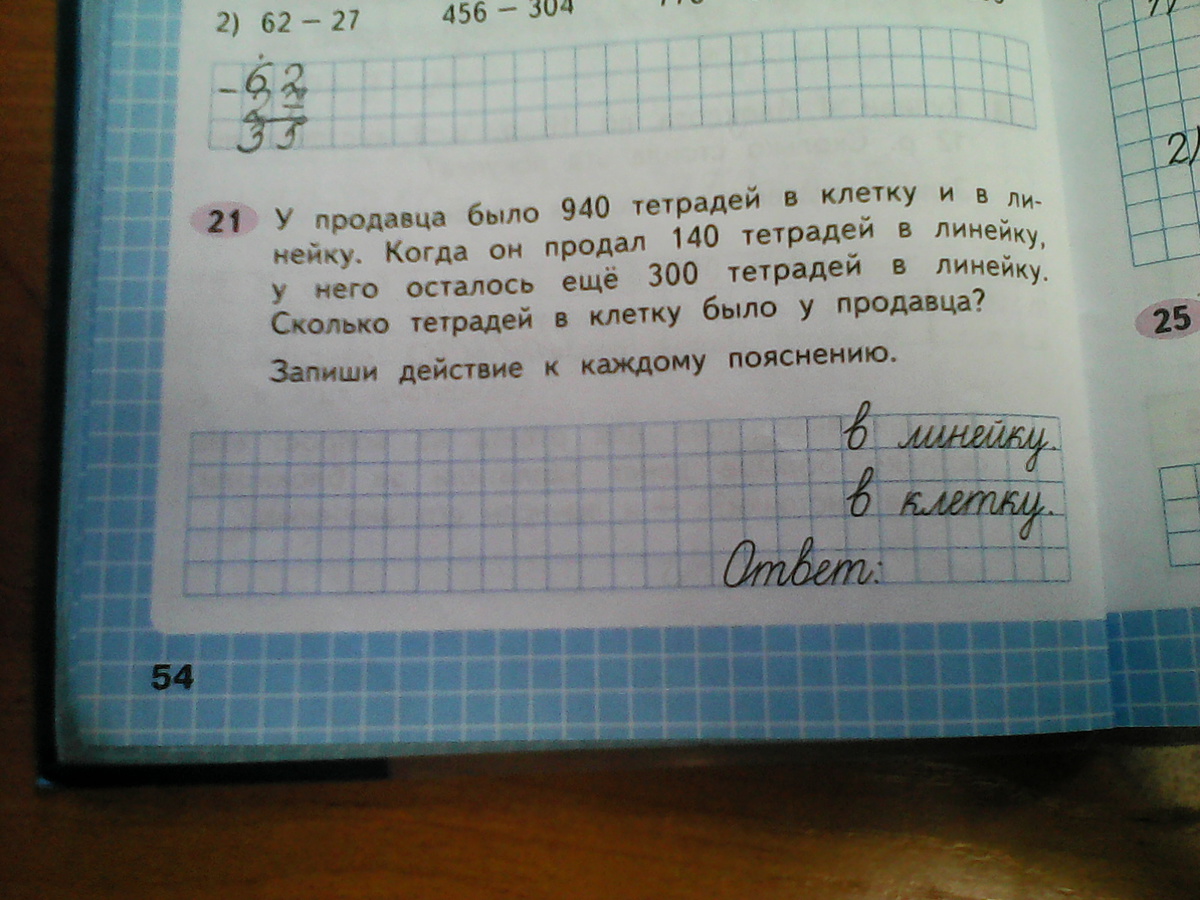 2) 62 − 27 456 − 304
− 62
27
35
21 У продавца было 940 тетрадей в клетку и в ли-
нейку. Когда он продал 140 тетрадей в линейку,
у него осталось ещё 300 тетрадей в линейку.
Сколько тетрадей в клетку было у продавца?
Запиши действие к каждому пояснению.
в линейку.
в клетку.
Ответ:
54
2)
25